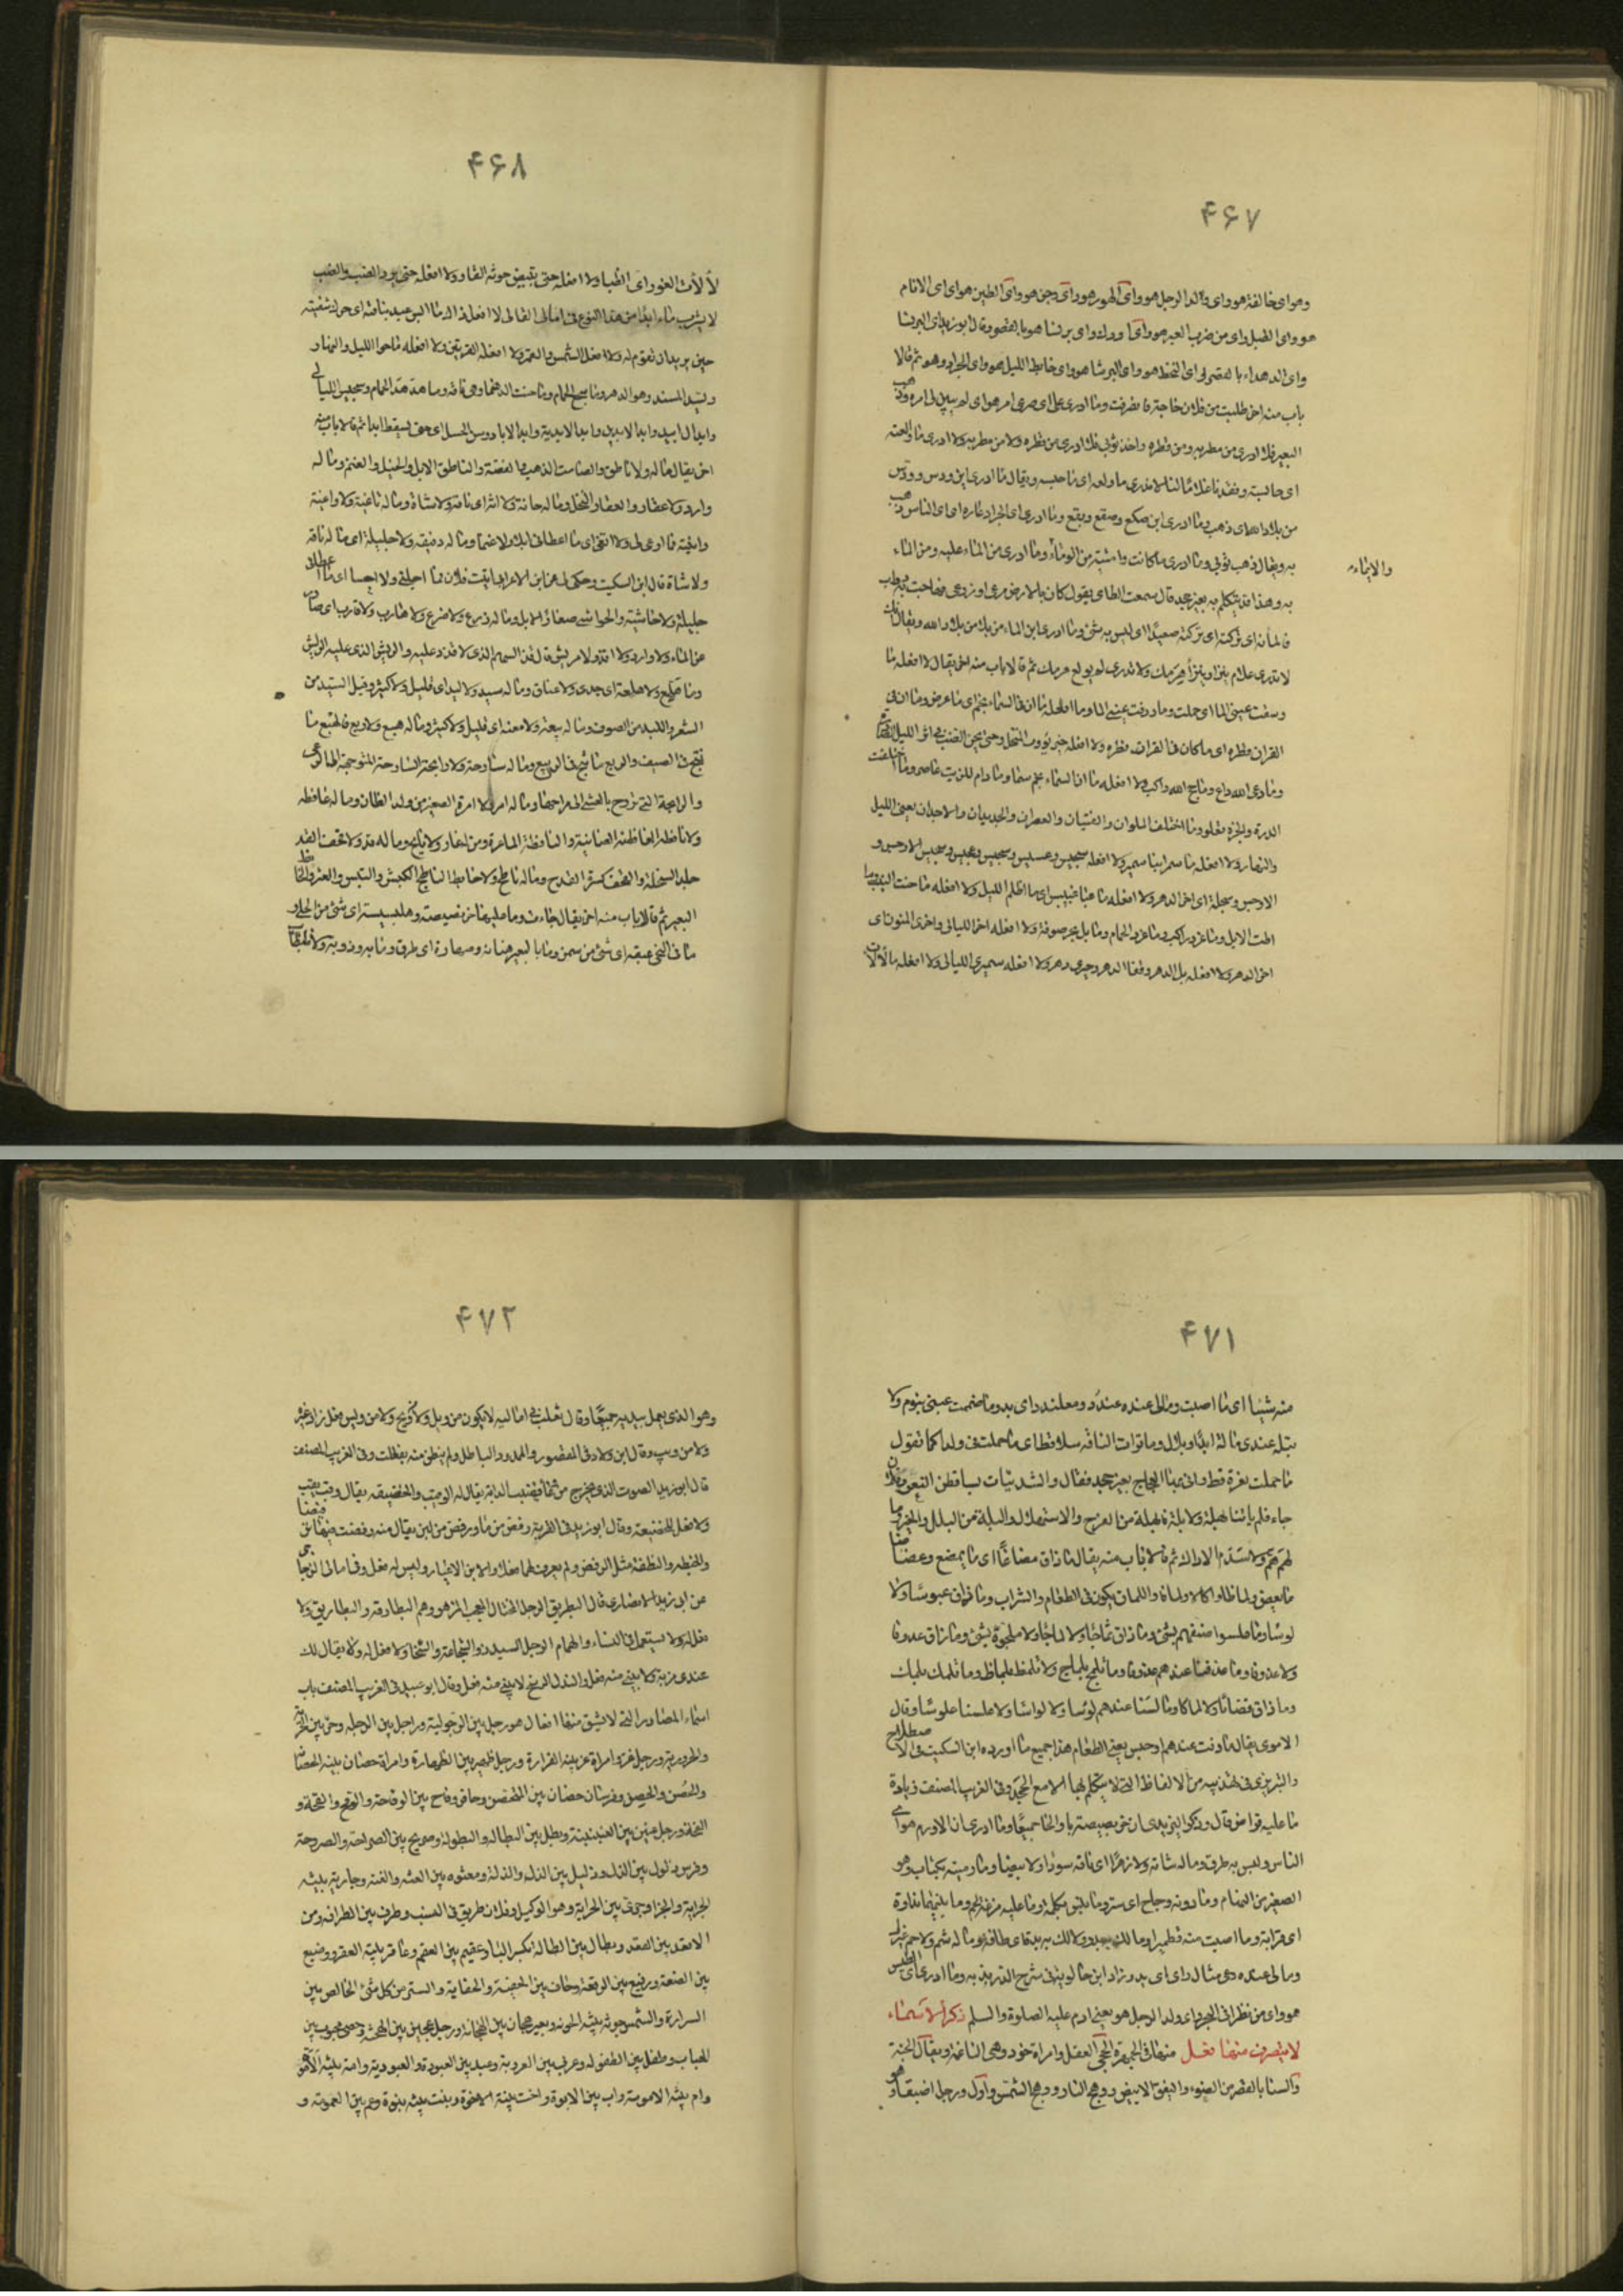 ۴۶۷
وهو اى خالفة هو واى والد الرجل هو واى الهوز هو واى وجن هو واى الطين هو اى اى الانام
هو واى الطبل واى من ضرب العير هو واى اودك واى برنسا هو بالقصر وقال ابو زيد اى البرنسا
واى الدهداء بالقصر اى الخلق هو واى البرنشا هو واى خابط الليل هو واى الجراد هو ثم قالا
باب منه اخر طلبت من فلان حاجة فانصرفت وما ادرى على اى صرعى امر هو اى لم يبين لى امره وذهب
البعير فلا ادرى من مطر به ومن قطره واخذ ثوبى فلا ادرى من قطره ولا من مطر به ولا ادرى ما والعته
اى حابسته وفقدنا غلاما لنا لا ندرى ما ولعه اى ما حبسه ويقال ما ادرى اين ودس وودس
من بلاد الله اى ذهب وما ادرى اين صكع وصقع وبقع وما ادرى اى الجراد عاره اى اى الناس ذهب
به ويقال ذهب ثوبى وما ادرى ما كانت وامئته من الوماء وما ادرى من الماء عليه ومن الماء
والايماء
به وهذا قد يتكلم به بغير جحد قال سمعت الطاى يقول كان بالارض مرعى او زرع فهاجت به دواب
فالماته اى تركته اى تركته صعيدا اى ليس به شئ وما ادرى اين الماء من بلاد الله ويقال فلان
لا تدرى علام ينزأ هرمك ولا تدرى لم يولع هرمك ثم قالا باب منه اخر يقال لا افعله ما
وسقت عينى الما اى حملت وما ذرفت عينى الما وما افعله ما ان فى السماء نجم اى ما عرض وما ان فى
الفرات قطره اى ما كان فى الفرات قطره ولا افعله حتى يؤوب المنخل وحتى يحن الضب فى اثر الابل
وما دعى الله داع وما حج الله راكب ولا افعله ما ان السماء سما وما دام للزيت عاصر وما اختلفت
الدرة والجرة وما اختلف الملوان والفتيان والعصران والجديدان والاجدان يعنى الليل
والنهار ولا افعله ما سمر ابنا سمير ولا افعله سجيس عجيس وسجيس الاوجس و
الاوجس وسجيلة اى اخر الدهر ولا افعله ما غبا غبيس اى ما اظلم الليل ولا افعله ما حنت النيب وما
اطت الابل وما غرد راكب وما غرد الحمام وما بل بحر صوفة ولا افعله اخر الليالى واخرى المنون اى
اخر الدهر ولا افعله يد الدهر وقفا الدهر وحيرى دهر ولا افعله سمير الليالى ولا افعله ما لألأت
۴۶۸
لألأت الفور اى الظباء ولا افعله حتى يبيض جونة القار ولا افعله حتى يرد الضب والضب
لا يشرب ماء ابدا من هذا النوع فى امالى القالى لا افعل ذاك ما ابس عبد بناقته اى حرك شفتيه
حين يريد ان تقوم له ولا افعله الشمس والقمر ولا افعله القرنين ولا افعله ما حدا الليل والنهار
ويد المسند وهو الدهر وما سجع الحمام وما حنت الدهماء وهى ناقة وما هدهد الحمام وسجيس الليالى
وابد الابيد وابد الابدين وابد الابدية وابد الاباد وسن الحسل اى حتى يسقط ابدا ثم قالا باب منه
اخر يقال ما له صامت ولا ناطق والصامت الذهب والفضة والناطق الابل والخيل والغنم وما له
دار ولا عقار والعقار النخل وما له حانة ولا انة اى ناقة ولا شاة وما له ثاغية ولا راغية
واتيته فما ارغى لى ولا اثغى اى ما اعطانى ابلا ولا غنما وما له دقيقة ولا جليلة اى ما له ناقة
ولا شاة قال ابن السكيت وحكى لى عن ابن الاعرابى اتيت فلان فما اجلنى ولا احشا اى ما اعطانى
جليلة ولا حاشية والحواشى صغار الابل وما له زرع ولا ضرع ولا هارب ولا قارب اى صادر
عن الماء ولا وارد وما له اقذ ولا مريش قال قذ السهم الذى لا قذذ عليه والمريش الذى عليه الريش
وما له هلع ولا هلعة اى جدى ولا عناق وما له سبد ولا لبد اى قليل ولا كثير وقيل السبد من
الشعر واللبد من الصوف وما له سعنة ولا معنة اى قليل ولا كثير وما له هبع ولا ربع فالهبع ما
نتج فى الصيف والربع ما نتج فى الربيع وما له سارحة ولا رايحة السارحة المتوجهة الى المرعى
والرايحة التى تروح بالعشى الى مراحها وما له امر ولا امرة الصغير من ولد الضان وما له عافطة
ولا نافطة العافطة الضانية والنافطة الماعزة وما له قد ولا قحف القد
جلد السخلة والقحف كسر القدح وما له ناطح ولا خابط الناطح الكبش والتيس والعنز والخابط
البعير ثم قالا باب منه اخر يقال جاءت وما عليها خربصيصة وهلبسيسة اى شئ من الحلى و
ما فى النحى عبقة اى شئ من سمن وما بالبعير هنانة وصهارة اى طرق وما به وذية ولا
۴۷۱
منه شيئا اى ما اصبت وما لى عنده عندد ومعلندد اى بد وما ضمت عينى بنوم ولا
تبله عندى بالة ابدا وبلال وما قرات الناقة سلا قط اى ما حملت فى ولدا كما تقول
ما حملت نعرة قط واتى بها العجاج بغير جحد فقال والشدنيات يساقطن النعر وفلان
جاء فلم ياتنا بهلة ولا بلة فالهلة من الفرح والاستهلال والبلة من البلل والخير وما
لهم هم ولا سدم الا ذاك ثم قالا باب منه يقال ما ذاق مضاغا اى ما يمضغ وعضاضا
ما يعض ولماظا واكالا ولماقا واللماق يكون فى الطعام والشراب وما ذاق عبوسا ولا
لوسا وما علسوا ضيفهم بشئ وما ذاق شماجا ولا لماجا ولا ملجوه بشئ وما ذاق عدوفا
ولا عذوفا وما عذفنا عندهم عذوفا وما تلمج بلماج ولا تلمظ بلماظ وما تلمك بلماك
وما ذاق قضاما ولا لماكا وما لسنا عندهم لوسا ولا لواسا ولا علسنا علوسا وقال
الاموى يقال ما ذقت عندهم اوجس يعنى الطعام هذا جميع ما اورده ابن السكيت فى الاصطلاح
والتبريزى فى تهذيبه من الالفاظ التى لا يتكلم بها الا مع الجحد وفى الغريب المصنف زيادة
ما عليه قراض قال وذكر اليزيدى ان خربصيصة بالحا والخا جميعا وما ادرى اى الاورم هو اى
الناس وليس به طرق وما له شامة ولا زهرا اى ناقة سودا ولا بيضا وما رميته بكثاب وهو
الصغير من السهام وما دونه وجاح اى ستر وما نبس بكلمة وما عليه مزعة لحم وما بينهما نفاوة
اى قرابة وما اصبت منه قطميرا وما لك به بدد ولا لك به بدة اى طاقة وما له شم ولا حم غيرك
وما لى عنده وعى مثال داى اى بد وزاد ابن خالويه فى شرح الدريدية وما ادرى اى الطبس
هو واى من نظر فى الحجر اى ولد الرجل هو يعنى ادم عليه الصلوة والسلم ذكر الاسماء
لا يتصرف منها فعل منها فى الجمهرة الحجى العقل وامراة خود وهى الناعمة ويقال الجنة
والسنا بالقصر من الضوء واليقق الابيض ووهج النار ووهج الشمس واول ورجل اضبط وهو
۴۷۲
وهو الذى يعمل بيديه جميعا وقال ثعلب فى اماليه لا يكون من ويل ولا ويح ولا من ويس فعل زاد غيره
ولا من ويب وقال ابن ولاد فى المقصور والممدود الباطل ولم ينطق منه بفعلت وفى الغريب المصنف
قال ابو زيد الصوت الذى يخرج من قنب الدابة يقال له الوقيب والخضيعة يقال وقب يقب
ولا فعل للخضيعة وقال ابو زيد فى القربة رفض من ماء ورفض من لبن يقال منه رفضت فيها
والخبطة والنطفة مثل الرفض ولم يعرف لهما فعلا والابن الاعتبار وليس له فعل وفى امالى الزجاجى
عن ابى زيد الانصارى قال البطريق الرجل المختال المعجب المزهو وهم البطارقة والبطاريق ولا
فعل له ولا يستعمل فى النساء والهمام الرجل السيد ذو الشجاعة والسخا ولا فعل له ولا يقال لك
عندى مزية ولا يبنى منه فعل والنذل لا يبنى منه فعل وقال ابو عبيد فى الغريب المصنف باب
اسماء المصادر التى لا يشتق منها افعال هو رجل بين الرجولية وراجل بين الرجلة وحر بين الحرية
والحرورية ورجل غر وامراة غر بينة الغرارة ورجل ظهير بين الظهارة وامراة حصان بينة الحصانة
والحصن والحصن وفرس حصان بين التحصن وحافر وقاح بين الوقاحة والوقح والقحة و
القحة ورجل عنين بين العنينية وبطل بين البطالة والبطولة وصريح بين الصراحة والصروحة
وفرس ذلول بين الذل وذليل بين الذل والذلة ومعتوه بين العته والعته وجارية بينة
الجراية والجراء وجرى بين الجراية وهو الوكيل وفلان طريق فى النسب وطرف بين الطرافة ومن
الاقعد بين القعدد وبطال بين البطالة بكسر الباء وعقيم بين العقم وعاقر بينة العقر ووضيع
بين الضعة ورفيع بين الرفعة وحاف بين الحفية والحفاية والسر من كل شئ الخالص بين
السرارة والشمس جونة بينة الجونة وبعير هجان بين الهجانة ورجل هجين بين الهجنة وخصى مجبوب بين
الجباب وطفل بين الطفولة وعربى بين العروبة وعبد بين العبودة والعبودية وامة بينة الاموة
وام بينة الامومة واب بين الابوة واخت بينة الاخوة وبنت بينة البنوة وعم بين العمومة و